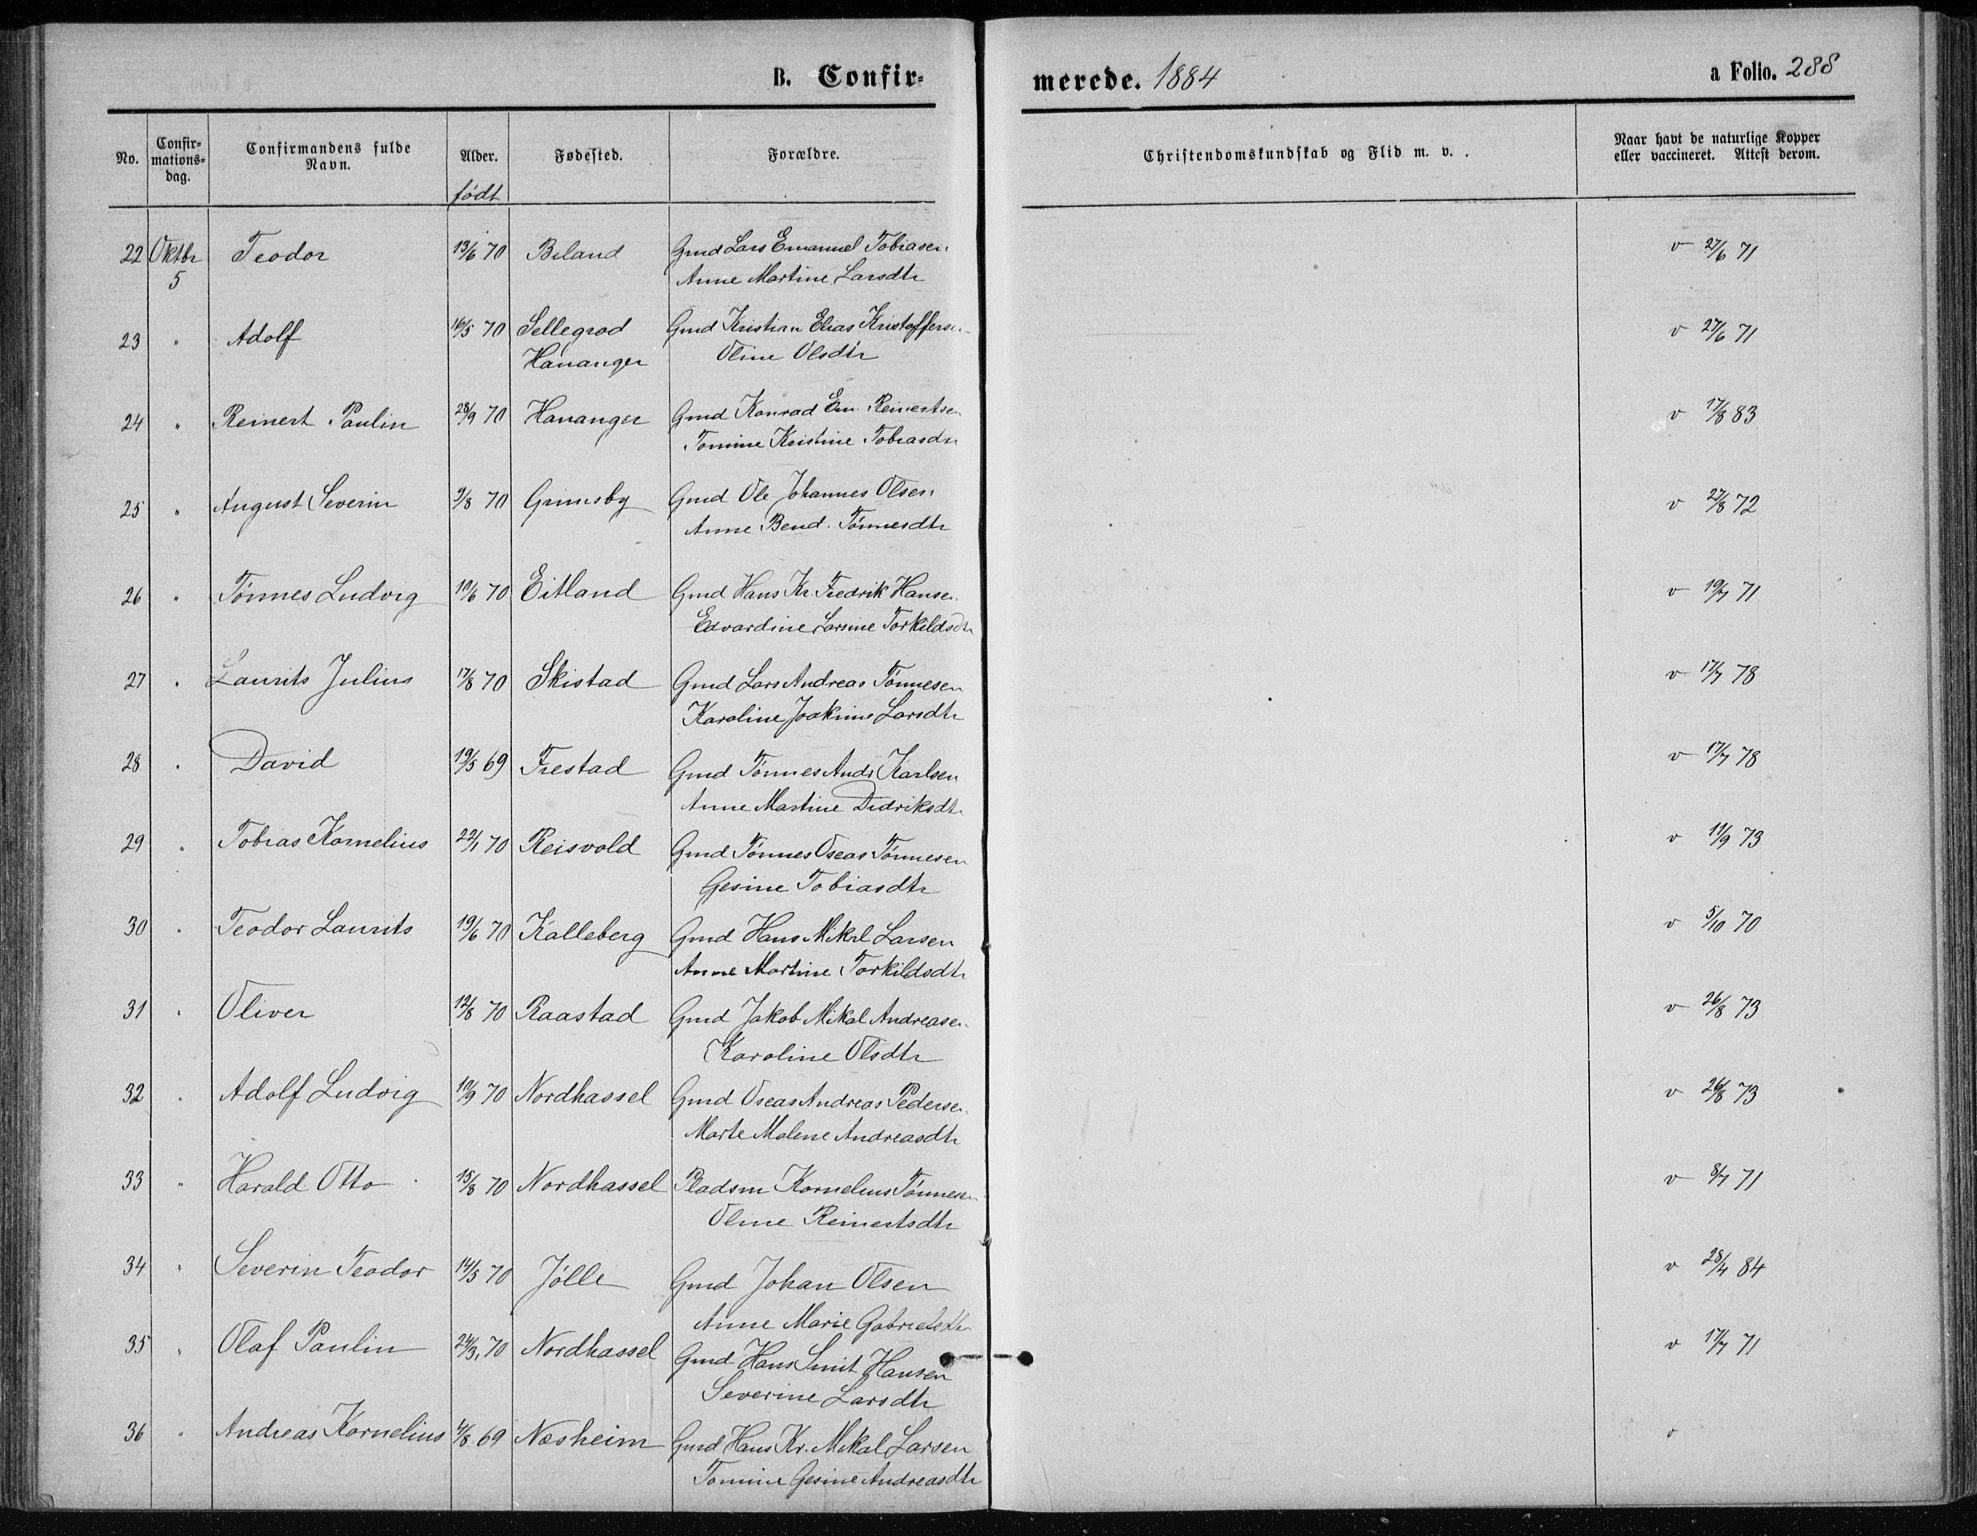 B. Confir-
merede. 1884
a Folio. 288
No.
Confir-
mations-
dag.
Confirmandens fulde
Navn.
Alder.
Fødested.
Forældre.
Christendomskundskab og Flid m. v. .
Naar havt de naturlige Kopper
eller vaccineret. Attest derom.
født
22 Oktbr Teodor 13/6 70 Beland Gmd Lars Emanuel Tobiasen v 27/6 71
5 Anne Martine Larsdtr
23 " Adolf 16/5 70 Sellegrod Gmd Kristian Elias Kristoffersen v 27/6 71
Hananger Oline Olsdtr
24 " Reinert Paulin 28/9 70 Hananger Gmd Konrad Em. Reinertsen v 17/8 83
Tomine Kristine Tobiasdtr
25 " August Severin 9/8 70 Grimsby Gmd Ole Johannes Olsen v 27/8 72
Anne Bend. Tønnesdtr
26 " Tønnes Ludvig 19/6 70 Eitland Gmd Hans Kr. Fredrik Hansen v 19/7 71
Edvardine Larsine Torkildsdtr
27 " Laurits Julius 17/8 70 Skistad Gmd Lars Andreas Tønnesen v 17/7 78
Karoline Joakime Larsdtr
28 " David 19/5 69 Frestad Gmd Tønnes Andr Karlsen v 17/7 78
Anne Martine Didriksdtr
29 " Tobias Kornelius 22/1 70 Reisvold Gmd Tønnes Oseas Tønnesen v 11/9 73
Gesine Tobiasdtr
30 " Teodor Laurits 19/6 70 Kalleberg Gmd Hans Mikal Larsen v 5/10 70
Anne Martine Torkildsdtr
31 " Oliver 12/8 70 Raastad Gmd Jakob Mikal Andreasen v 26/8 73
Karoline Olsdtr
32 " Adolf Ludvig 19/9 70 Nordhassel Gmd Oseas Andreas Pedersen v 26/8 73
Marte Malene Andreasdtr
33 " Harald Otto 15/8 70 Nordhassel Pladsm Kornelius Tønnesen v 8/7 71
Oline Reinertsdtr
34 " Severin Teodor 14/5 70 Jølle Gmd Johan Olsen v 28/4 84
Anne Marie Gabrielsdtr
35 " Olaf Paulin 24/3 70 Nordhassel Gmd Hans Smit Hansen v 17/7 71
Severine Larsdtr
36 " Andreas Kornelius 4/8 69 Nesheim Gmd Hans Kr. Mikal Larsen v
Tomine Gesine Andreasdtr